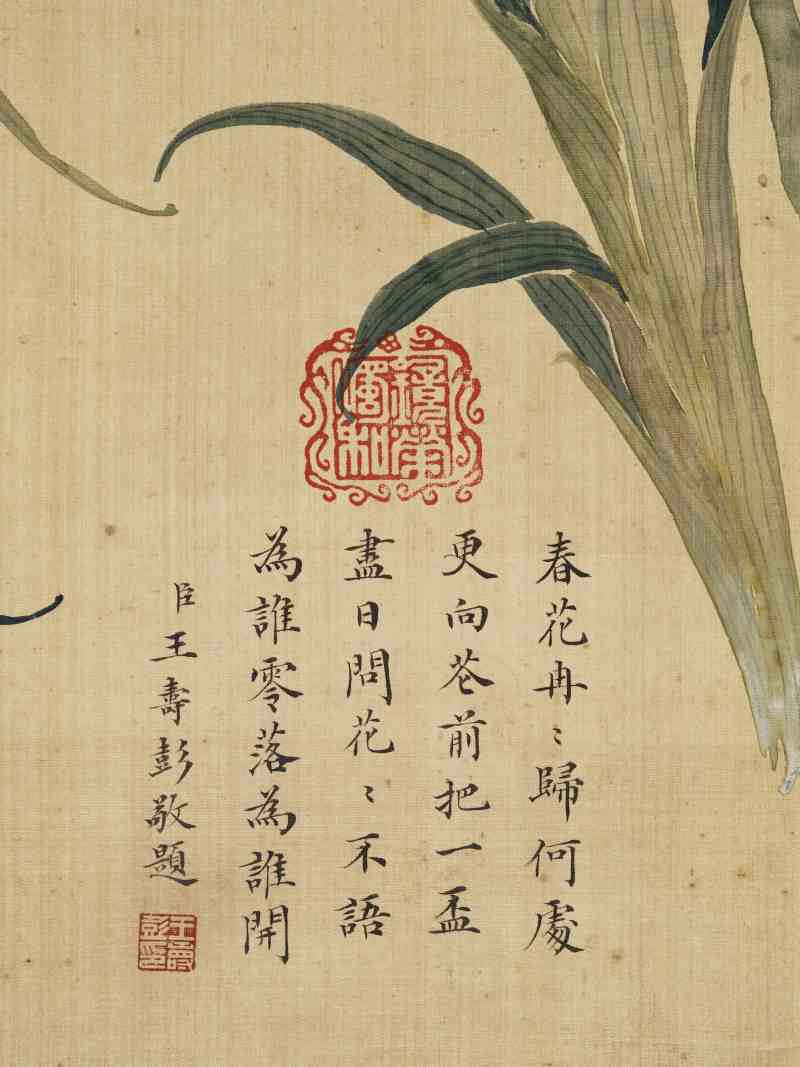 春花冉〻歸何處
更向花前把一盃
盡日問花〻不語
為誰零落為誰開
臣王壽彭敬題
王壽彭印